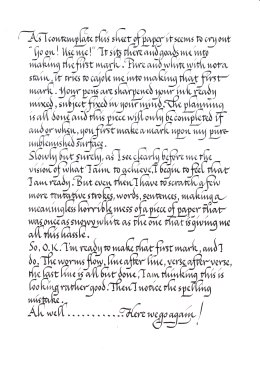 As I contemplate this sheet of paper it seems to cry out
"Go on! Use me!" It sits there and goads me into
making the first mark. Pure and white with not a
stain, it tries to cajole me into making that first
mark. Your pens are sharpened your ink ready
mixed, subject fixed in your mind. The planning
is all done and this piece will only be completed if
and/or when, you first make a mark upon my pure
unblemished surface.
Slowly but surely, as I see clearly before me the
vision of what I aim to achieve, I begin to feel that
I am ready. But even then I have to scratch a few
more tentative strokes, words, sentences, making a
meaningless horrible mess of a piece of paper that
was once as snowy white as the one that is giving me
all this hassle.
So, O.K. I'm ready to make that first mark, and I
do. The worms flow, line after line, verse after verse,
the last line is all but done, I am thinking this is
looking rather good. Then I notice the spelling
mistake.
Ah well ............ Here we go again!